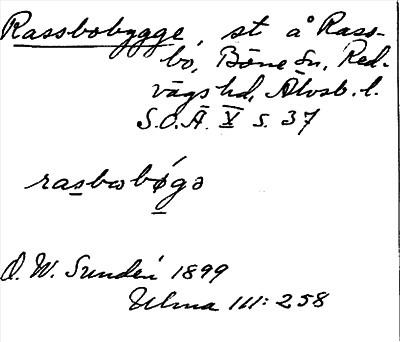 Rassbobygge, st å Rass-
bo, Böne sn, Red-
vägs hd, Älvsb. l.
S.O.Ä. V s. 37
rasbωbǿgə
D. W. Sundén 1899
Ulma 111: 258